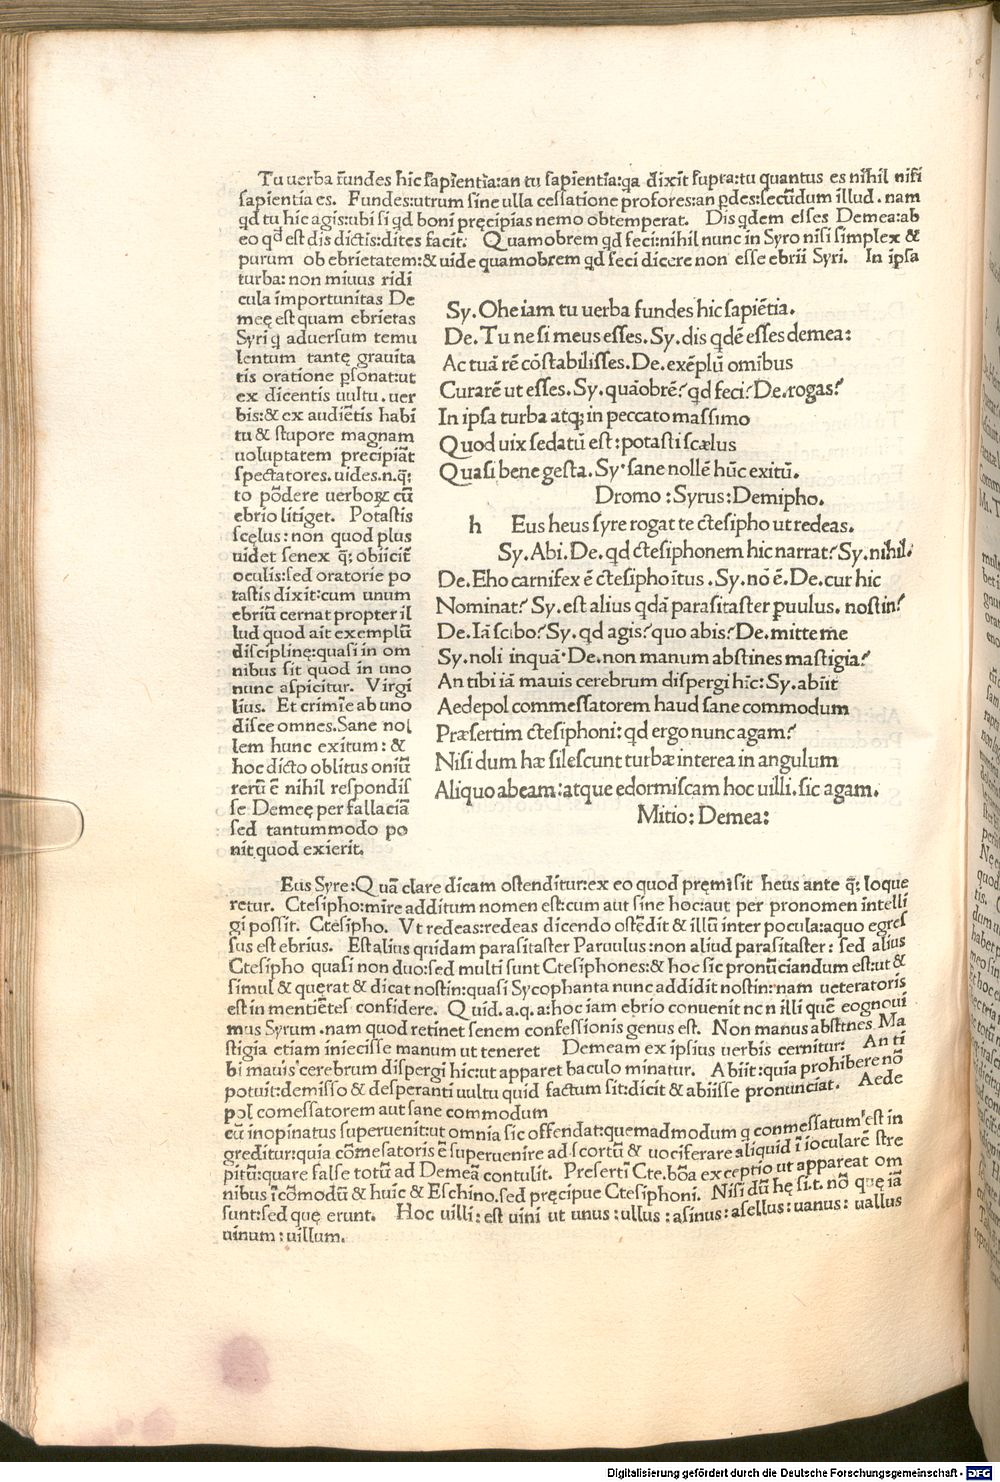 Tu uerba fundes hic sapientia:an tu sapientia:qa dixit supra:tu quantus es nihil nisi
sapientia es. Fundes:utrum sine ulla cessatione profores:an ꝓdes:secūdum illud. nam
qd tu hic agis:ubi si qd boni pręcipias nemo obtemperat. Dis qdem esses Demea:ab
eo qd est dis dictis:dites facit. Quamobrem qd feci:nihil nunc in Syro nisi simplex &
purum ob ebrietatem:& uide quamobrem qd feci dicere non esse ebrii Syri. In ipsa
turba: non miuus ridi
cula importunitas De
meę est quam ebrietas
Syri q aduersum temu
lentum tantę grauita
tis oratione ꝑsonat:ut
ex dicentis uultu. uer
bis:& ex audiētis habi
tu & stupore magnam
uoluptatem precipiāt
spectatores. uides.n.q̄;
to pōdere uerboꝝ cū
ebrio litiget. Potastis
scęlus: non quod plus
uidet senex q̄; obiicit
oculis:sed oratorie po
tastis dixit:cum unum
ebriū cernat propter il
lud quod ait exemplū
disciplinę:quasi in om
nibus sit quod in uno
nunc aspicitur. Virgi
lius. Et crimīe ab uno
disce omnes.Sane nol
lem hunc exitum: &
hoc dicto oblitus oniū
rerū ē nihil respondis
se Demeę per fallaciā
sed tantummodo po
nit quod exierit.
Sy. Ohe iam tu uerba fundes hic sapiētia.
De. Tu ne si meus esses. Sy. dis qdē esses demea:
Ac tuā rē cōstabilisses. De. exēplū omibus
Curarē ut esses. Sy. quāobrē? qd feci? De. rogas?
In ipsa turba atq; in peccato massimo
Quod uix sedatū est: potasti scælus
Quasi bene gesta. Sy. sane nollē hūc exitū.
Dromo : Syrus: Demipho.
h Eus heus syre rogat te ctesipho ut redeas.
Sy. Abi. De. qd ctesiphonem hic narrat? Sy. nihil.
De. Eho carnifex ē ctesipho ītus . Sy. nō ē. De. cur hic
Nominat? Sy. est alius qdā parasitaster ꝑuulus. nostin?
De. Iā scibo? Sy. qd agis? quo abis? De. mitte me
Sy. noli inquā. De. non manum abstines mastigia?
An tibi iā mauis cerebrum dispergi hīc: Sy. abiit
Aedepol commessatorem haud sane commodum
Præsertim ctesiphoni: qd ergo nunc agam?
Nisi dum hæ silescunt turbæ interea in angulum
Aliquo abeam: atque edormiscam hoc uilli. sic agam.
Mitio: Demea:
Eus Syre:Quā clare dicam ostenditur:ex eo quod pręmisit heus ante q̄; loque
retur. Ctesipho:mire additum nomen est:cum aut sine hoc:aut per pronomen intelli
gi possit. Ctesipho. Vt redeas:redeas dicendo ostēdit & illū inter pocula:a quo egres
sus est ebrius. Est alius quidam parasitaster Paruulus:non aliud parasitaster: sed alius
Ctesipho quasi non duo:sed multi sunt Ctesiphones:& hoc sic pronūciandum est:ut &
simul & quęrat & dicat nostin:quasi Sycophanta nunc addidit nostin: nam ueteratoris
est in mentiētes confidere. Quid. a.q. a:hoc iam ebrio conuenit non illi quē eognoui
mus Syrum .nam quod retinet senem confessionis genus est. Non manus abstines Ma
stigia etiam iniecisse manum ut teneret Demeam ex ipsius uerbis cernitur: An ti
bi mauis cerebrum dispergi hic:ut apparet baculo minatur. Abiit:quia prohibere nō
potuit:demisso & desperanti uultu quid factum sit:dicit & abiisse pronunciat. Aede
pol comessatorem aut sane commodum
cū inopinatus superuenit:ut omnia sic offendat:quemadmodum q conmessatum est in
greditur:quia cōmesatoris ē superuenire ad scortū & uociferare aliquid ī ioculare stre
pitū:quare false totū ad Demeā contulit. Presertī Cte.bōa exceptio ut appareat om
nibus īcōmodū & huic & Eschino.sed pręcipue Ctesiphoni. Nisi dū hę si.t. nō quę iā
sunt:sed quę erunt. Hoc uilli: est uini ut unus : ullus : asinus: asellus: uanus: uallus
uinum : uillum.
Digitalisierung gefördert durch die Deutsche Forschungsgemeinschaft - DFG